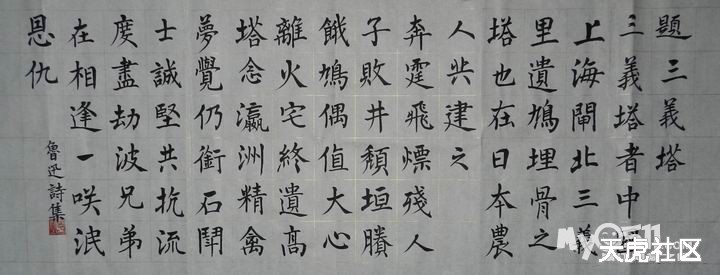 題三義塔
三義塔者中
上海閘北三義
里遺鳩埋骨之
塔也在日本農
人共建之
奔霆飛熛殘人
子敗井頹垣賸
餓鳩偶值大心
離火宅終遺高
塔念瀛洲精禽
夢覺仍銜石鬥
士誠堅共抗流
度盡劫波兄弟
在相逢一咲泯
恩仇
魯迅詩集
天虎社区